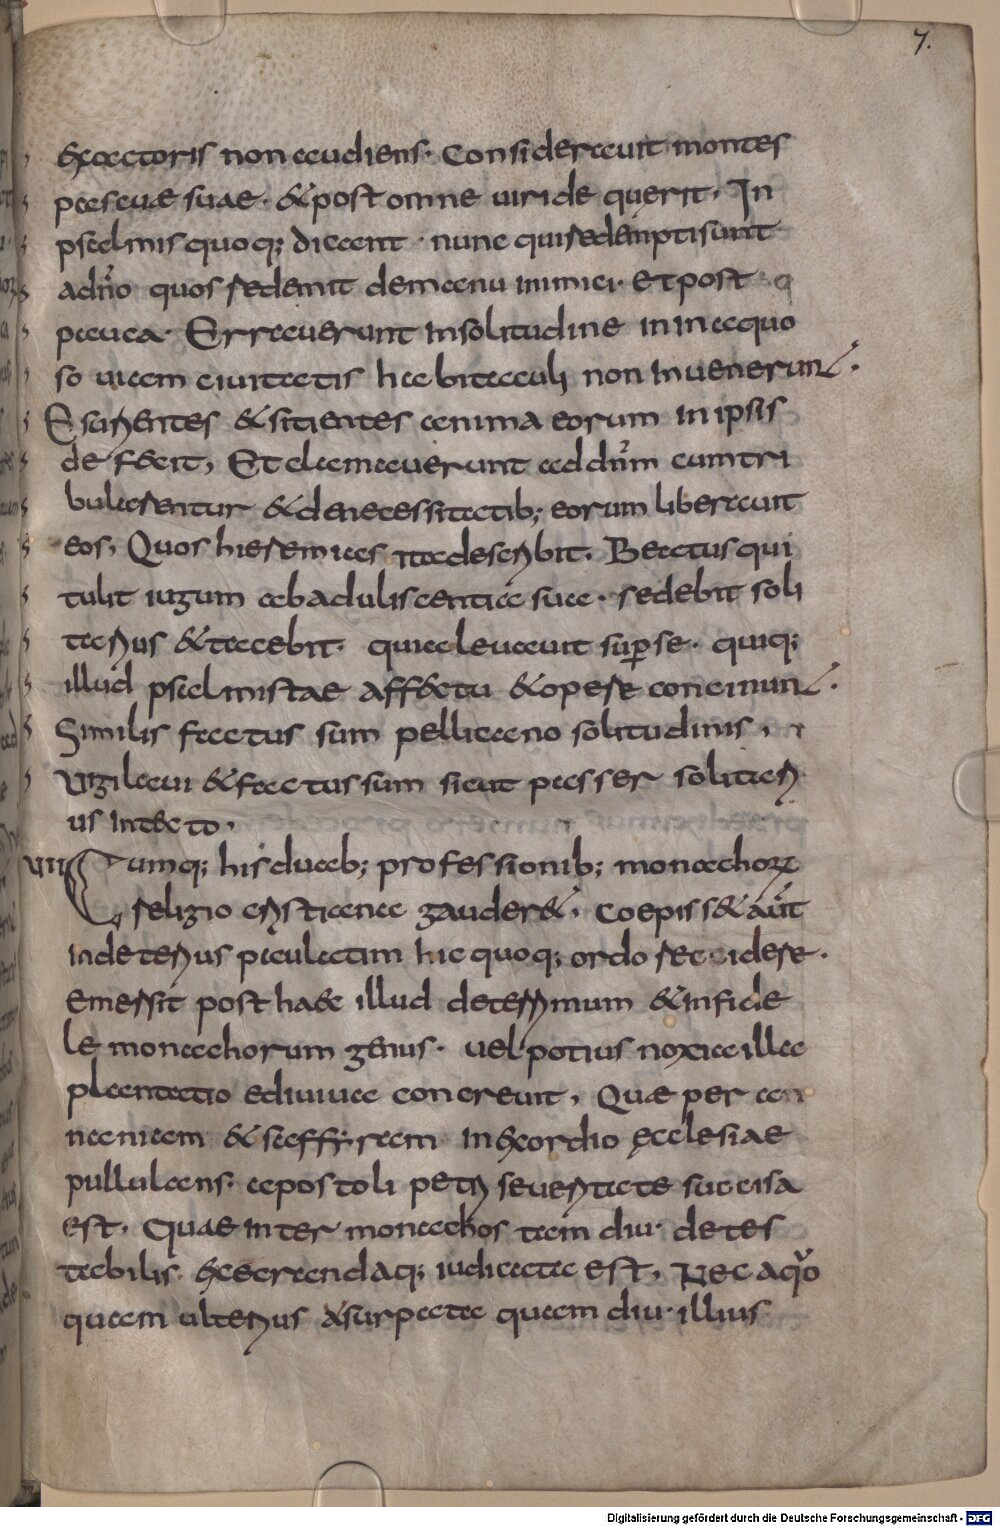 7.
exactoris non audiens. Considerauit montes
pascuae suae. & post omne uiride querit. In
psalmis quoq; dicent. nunc qui redempti sunt
a dño quos redemit de manu inimici. Et post
pauca. Errauerunt in solitudine in inaquo
so uiam ciuitatis habitaculi non inuenerunt.
Esurientes & sitientes anima eorum in ipsis
defecit, Et clamauerunt ad dñm cum tri
bularentur & de necessitatib; eorum liberauit
eos, Quos hieremias ita describit. Beatus qui
tulit iugum ab aduliscentia sua. sedebit soli
tarius & tacebit. quia leuauit super se. quiq;
illud psalmistae affectu & opere concinunt.
Similis factus sum pellicano solitudinis,
Vigilaui & factus sum sicut passer solitari
us in tecto.
VII Cumq; his duab; professionib; monachorum
religio cristiana gauderet, Coepisset aut
in deterius paulatim hic quoq; ordo reccidere.
Emersit post haec illud deterrimum & infide
le monachorum genus. uel potius noxia illa
plantatio ediuiua concreuit, Quae per an
naniam & saffyram in exordio ecclesiae
pullulans. apostoli petri seueritate succisa
est. Quae inter monachos tam diu detes
tabilis. execrandaq; iudicata est, Nec a quo
quam ulterius usurpata quam diu illius
Digitalisierung gefördert durch die Deutsche Forschungsgemeinschaft - DFG